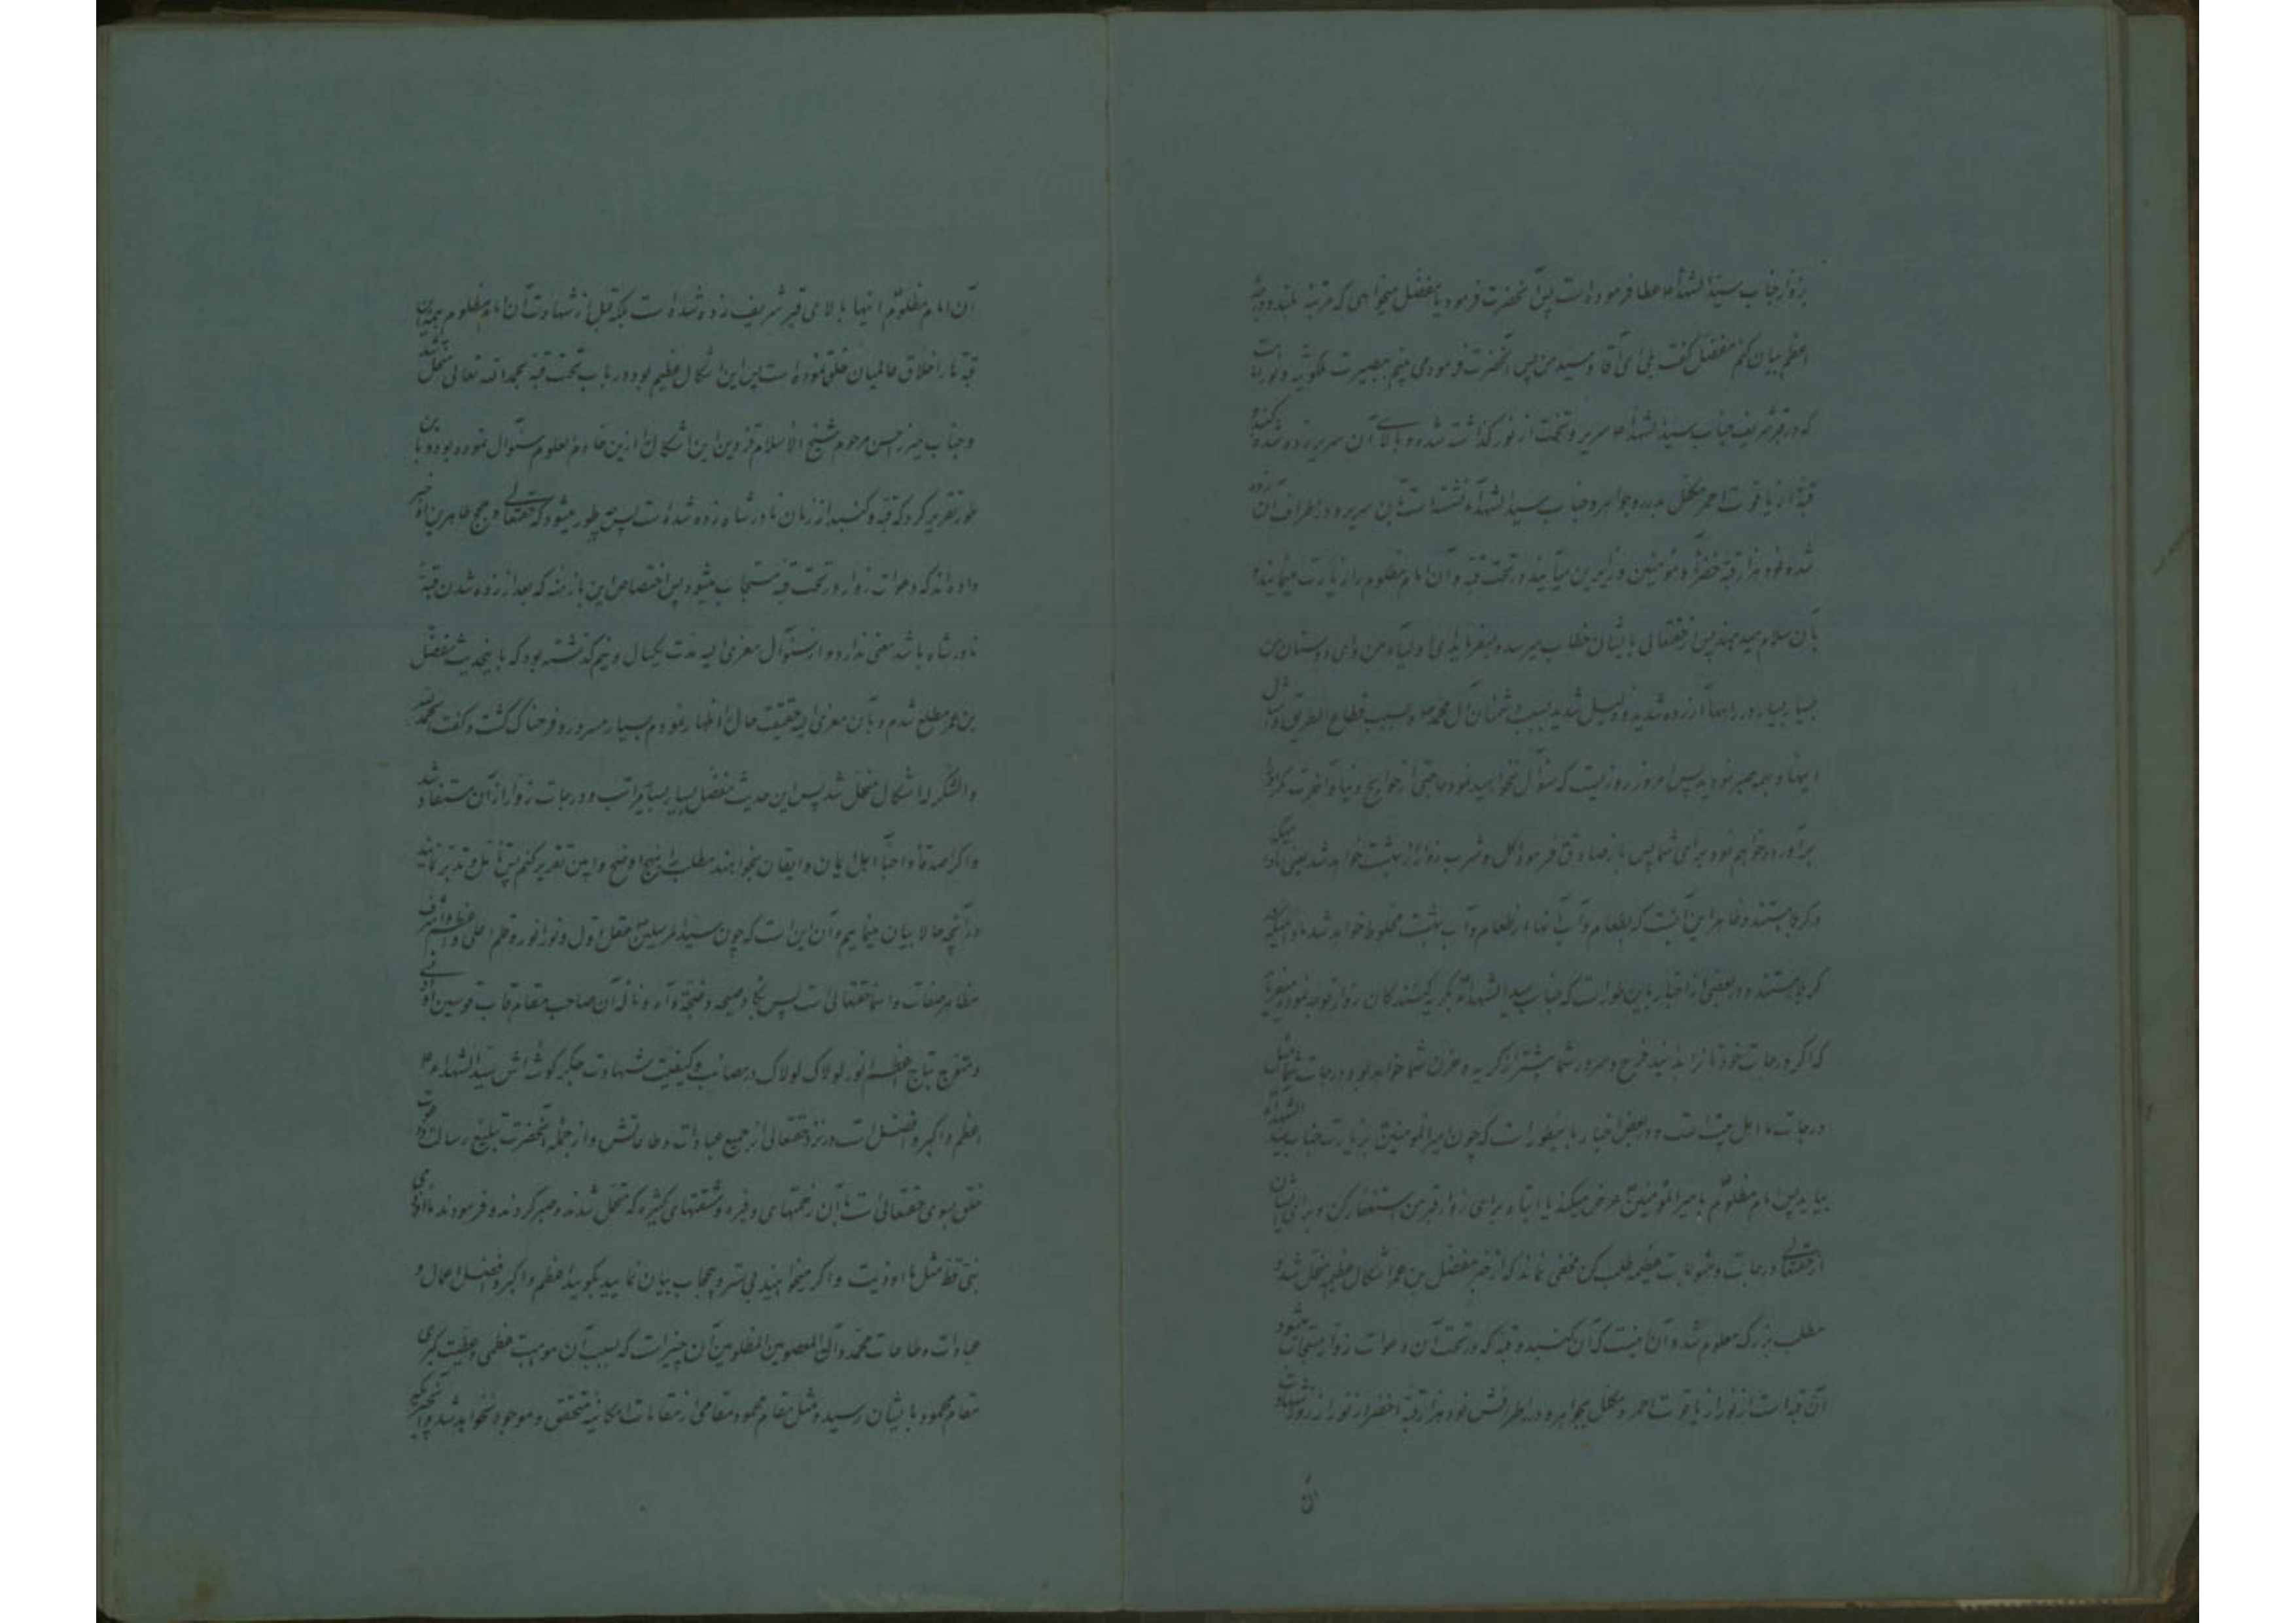 بزوار جناب سید الشهداء ع عطا فرموده است پس آنحضرت فرمود یا مفضل میخواهی که مرتبه بلند و درجه
اعظم بیان کنم مفضل گفت بلی ای آقا و سید من پس آنحضرت فرمود می بینم ببصیرت ملکوتیه و نورانیت
که در قبر شریف جناب سید الشهداء ع سریر و تخت از نور گذاشته شده و بالای آن سریر زده شده گنبد و
قبه از یاقوت احمر مکلل بدر و جواهر و جناب سید الشهداء نشسته است بآن سریر و در اطراف آن زده
شده نود هزار قبه خضراء و مؤمنین و زایرین میآیند در تحت قبه و آن امام مظلوم را زیارت مینمایند و
بآن سلام میدهند پس از حقتعالی بایشان خطاب میرسد و میفرماید ای اولیاء من و ای دوستان من
بسیار بسیار در راهها آزرده شدید و ذلیل شدید بسبب دشمنان آل محمد ص و بسبب قطاع الطریق و امثال
اینها و همه صبر نمودید پس امروز روزیست که سئوال نخواهید نمود حاجتی از حوایج دنیا و آخرت مگر
برآورده خواهم نمود برای شما پس باز صادق ع فرمود اکل و شرب زوار از بهشت خواهد شد یعنی مادامیکه
در کربلا هستند و ظاهر این آنست که بطعام و آب آنها از طعام و آب بهشت مخلوط خواهد شد مادامیکه
کربلا هستند و در بعضی از اخبار باین طور است که جناب سید الشهداء بگریه کنندگان زوار توجه نموده میفرماید
که اگر درجات خودتانرا بدانید فرح و سرور شما بیشتر از گریه و حزن شما خواهد بود و درجات شما مثل
درجات ما اهل بیت است و در بعضی اخبار باینطور است که چون امیر المؤمنین ع بزیارت جناب سید الشهداء
بیاید پس امام مظلوم ع بامیر المؤمنین ع عرض میکند یا ابتاه برای زوار قبر من استغفار کن و برای ایشان
از حقتعالی درجات و مثوبات عظیمه طلب کن مخفی نماند که از خبر مفضل بن عمر اشکال عظیم منحل شد و
مطلب بزرگ معلوم شد و آن اینست که آن گنبد و قبه که در تحت آن دعوات زوار مستجاب میشود
آن قبه است از نور از یاقوت احمر و مکلل بجواهر و در اطرافش نود هزار قبه اخضر از نور از روز شهادت
آن امام مظلوم ع اینها بالای قبر شریف زده شده است بلکه قبل از شهادت آن امام مظلوم همه این
قبه ها را خلاق عالمیان خلق نموده است پس این اشکال عظیم بود در باب تحت قبه بحمد الله تعالی منحل شد
و جناب میرزا حسن مرحوم شیخ الاسلام قزوین این اشکال را از این خادم العلوم سئوال نموده بود و باین
طور تقریر کرد که قبه و گنبد از زمان نادر شاه زده شده است پس چطور میشود که حقتعالی و حجج طاهرین ع خبر
داده اند که دعوات زوار در تحت قبه مستجاب میشود پس اختصاص این بازمنه که بعد از زده شدن قبه
نادر شاه باشد معنی ندارد و از سئوال معزی الیه مدت یکسال و نیم گذشته بود که باینحدیث مفضل
بن عمر مطلع شدم و بآن معزی الیه حقیقت حال را اظهار نمودم بسیار مسرور و فرحناک گشت و گفت الحمد لله
و الشکر له اشکال منحل شد پس این حدیث مفضل بسیار بسیار مراتب و درجات زوار از آن مستفاد شد
و اگر اصدقاء و احباء اهل ایمان و ایقان بخواهند مطلب را بنهج اوضح و ابین تقریر کنم پس تامل و تدبر نمایند
در آنچه حالا بیان مینمایم و آن این است که چون سید المرسلین ص عقل اول و نور انور و قلم اعلی و اعظم و اشرف
مظاهر صفات و اسماء حقتعالی است پس بکا و صیحه و ضجه و آه و ناله آن صاحب مقام قاب قوسین او ادنی
و متوج بتاج اعظم انور لولاک لولاک در مصائب و کیفیت شهادت جگر گوشه اش سید الشهداء ع
اعظم و اکبر و افضل است در نزد حقتعالی از جمیع عبادات و طاعاتش و از جمله آنحضرت تبلیغ رسالت و دعوت
خلق بسوی حقتعالی است با آن زحمتهای وفیره و مشقتهای کثیره که متحمل شدند و صبر کردند و فرمودند ما اوذی
نبی قط مثل ما اوذیت و اگر میخواهید بی ستر و حجاب بیان نمایید بگویید اعظم و اکبر و افضل اعمال و
عبادات و طاعات محمد و آله المعصومین المظلومین آن چیز است که بسبب آن موهبت عظمی و عطیت کبری
مقام محمود بایشان رسید و مثل مقام محمود مقامی از مقامات امکانیه متحقق و موجود نخواهد شد و آنچیزیکه